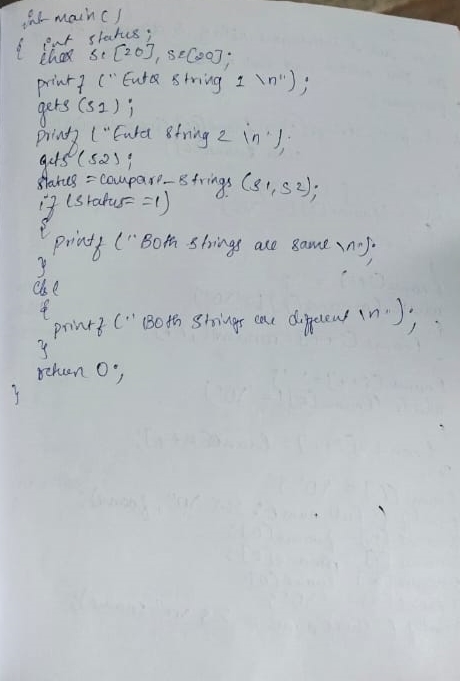 int main()
{ int status;
char S1[20], S2[20];
printf ("Enter String 1 \n");
gets (S1);
printf ("Enter String 2 \n");
gets (S2);
status = compare_strings (S1, S2);
if (status == 1)
{
printf ("Both strings are same \n");
}
else
{
printf ("Both Strings are different \n");
}
return 0;
}